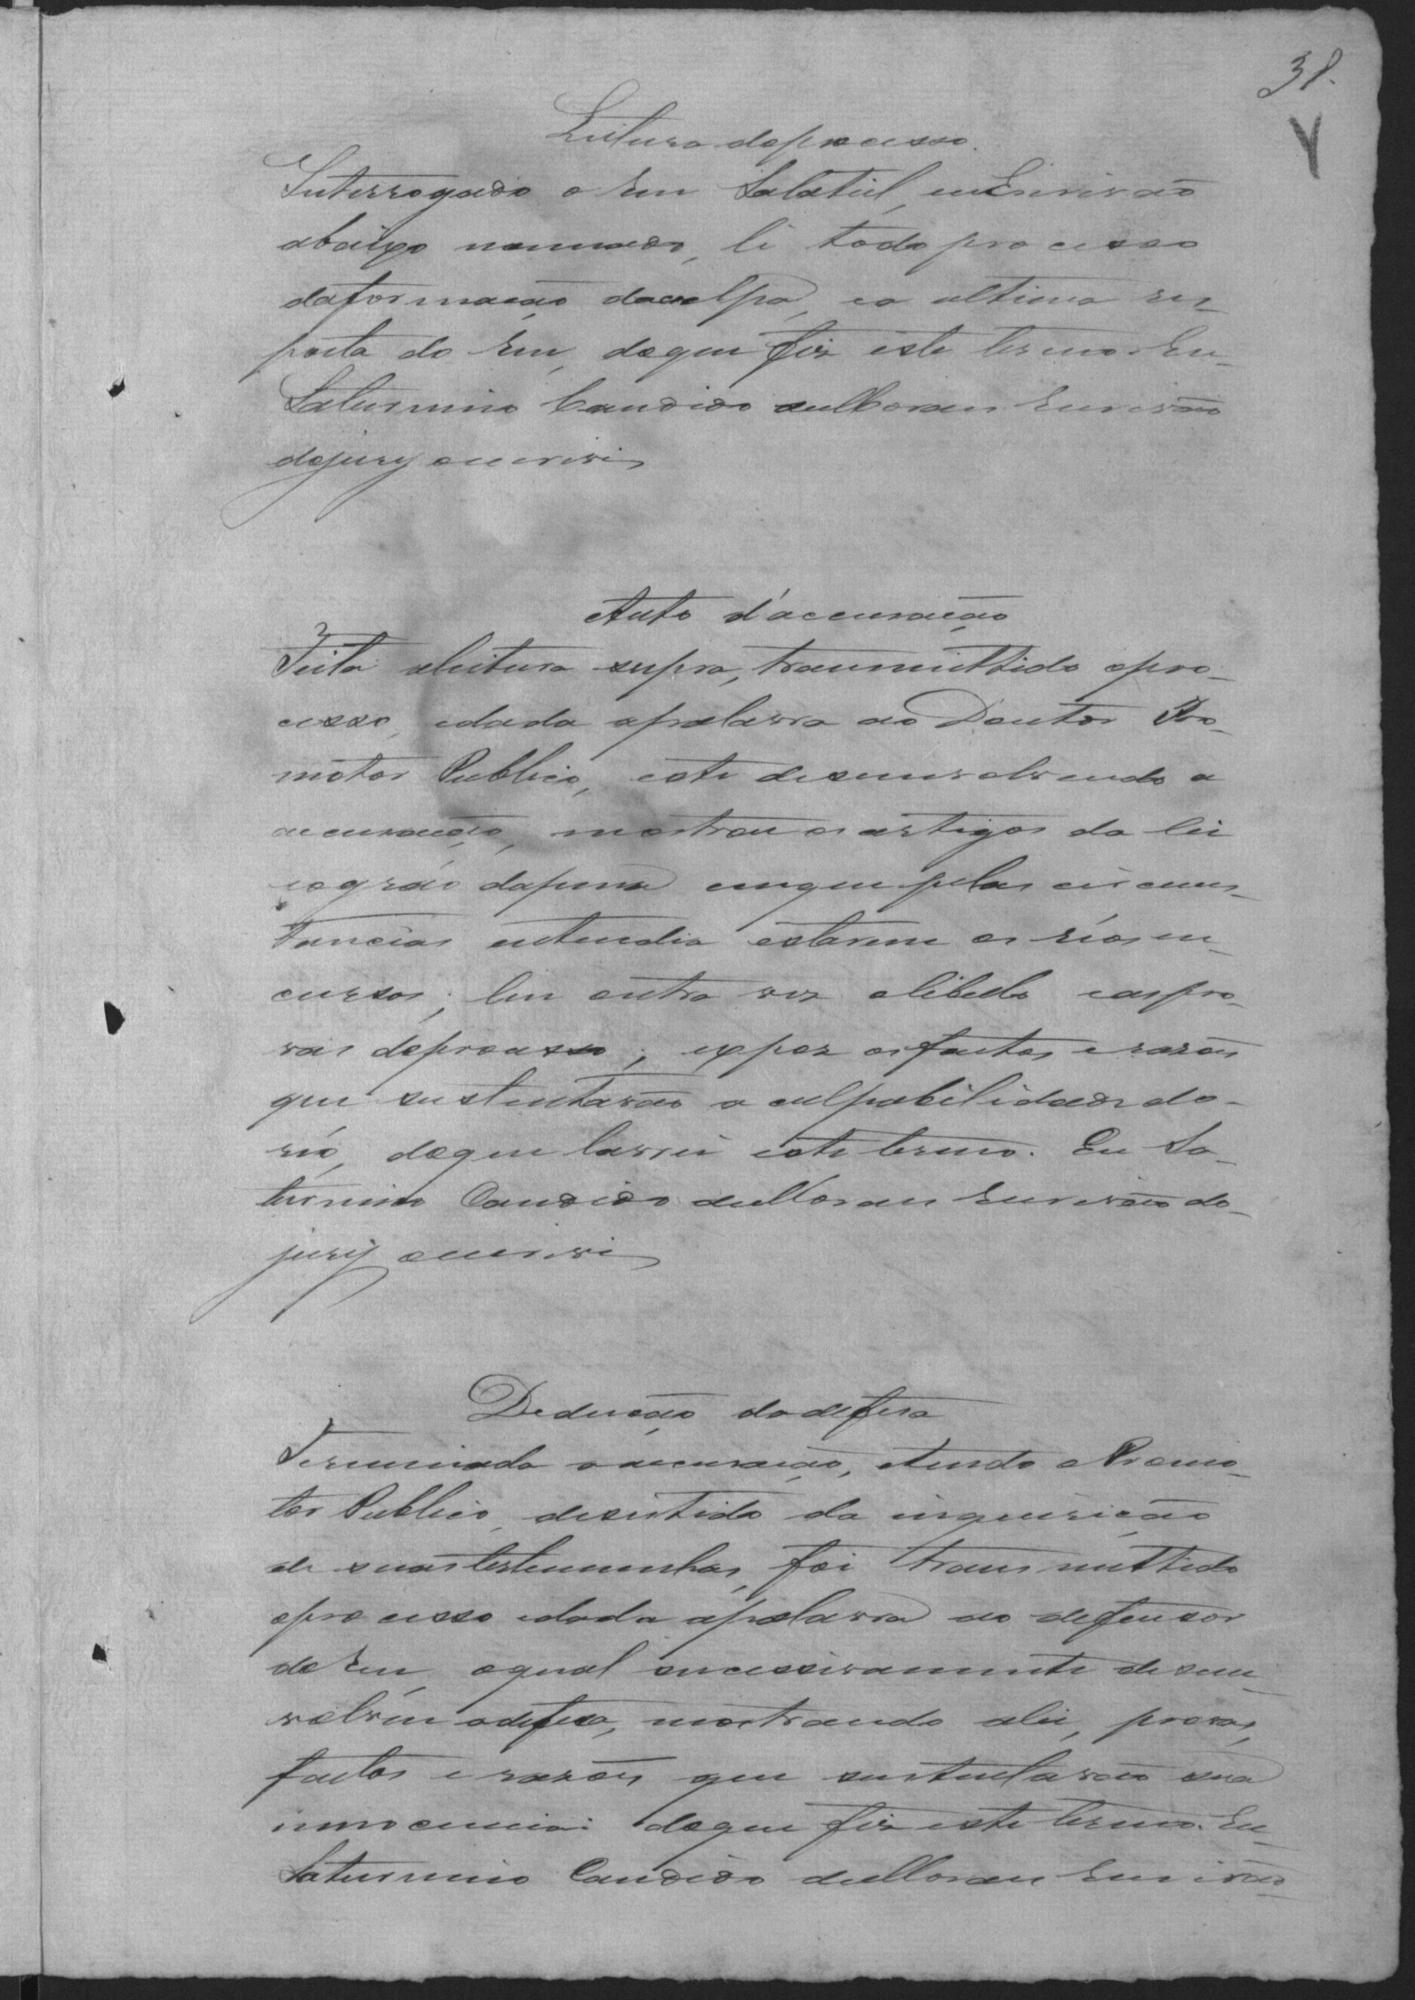 38.
Leitura do processo.
Interrogado o Reu Salatiel, eu Escrivão
abaixo nomeado, li todo processo
da formação da culpa, e a ultima res-
posta do Reu, do que fiz este termo. Eu
Saturnino Candido de Moraes Escrivão
do jury o escrivi
Auto d'accusação
Feita a leitura supra, transmittido o pro-
cesso, e dada a palavra ao Doutor Pro-
motor Publico, este desenvolvendo a
accusação, mostrou os artigos da lei
e o gráo da pena em que pelas circuns-
tancias entendia estarem os réos in-
cursos; leu outra vez o libello e as pro-
vas do processo; expoz os factos e razões
que sustentavão a culpabilidade do
réo, do que lavrei este termo. Eu Sa-
turnino Candido de Moraes Escrivão do
jury o escrivi
Deducção da defesa
Terminada a accusação, e tendo o Promo-
tor Publico desistido da inquirição
de suas testemunhas, foi transmittido
o processo e dada a palavra ao defensor
do Reu, o qual successivamente desen-
volveu a defesa, mostrando a lei, provas,
factos e razões que sustentavão sua
innocencia: do que fiz este termo. Eu
Saturnino Candido de Moraes Escrivão